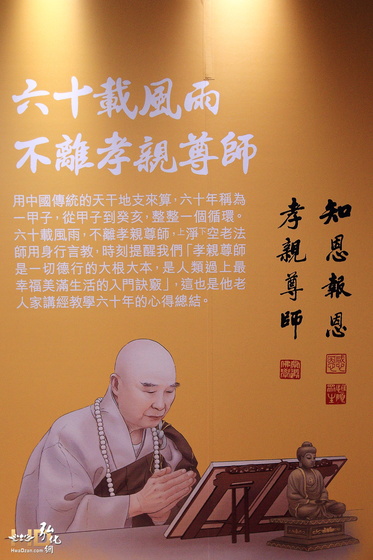 六十載風雨
不離孝親尊師
用中國傳統的天干地支來算，六十年稱為
一甲子，從甲子到癸亥，整整一個循環。
六十載風雨，不離孝親尊師，上淨下空老法
師用身行言教，時刻提醒我們「孝親尊師
是一切德行的大根大本，是人類過上最
幸福美滿生活的入門訣竅」，這也是他老
人家講經教學六十年的心得總結。
知恩報恩
孝親尊師
弘化
網
HwaDzan.com